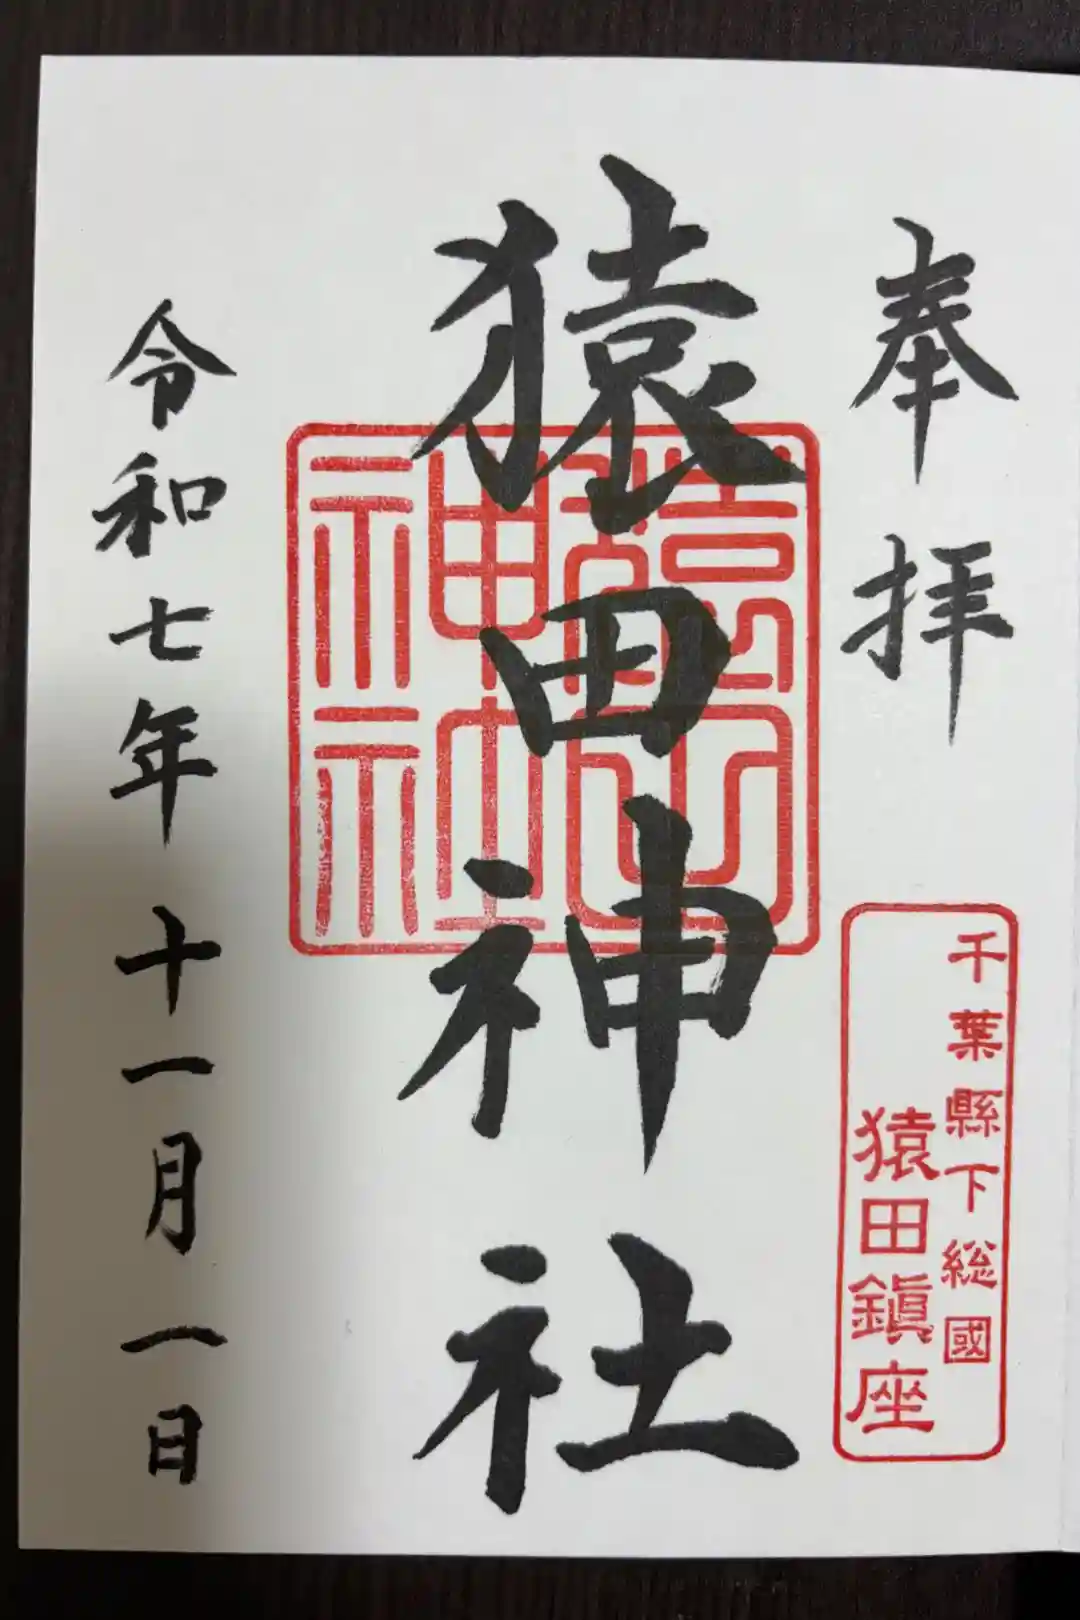 奉拝
千葉縣下総國
猿田鎭座
猿田神社
猿田神社
令和七年十一月一日